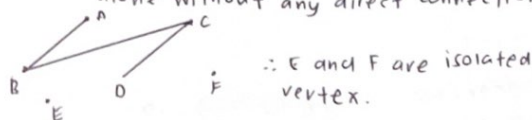 without any direct
A
C
B
D
F
E
∴ E and F are isolated
vertex.